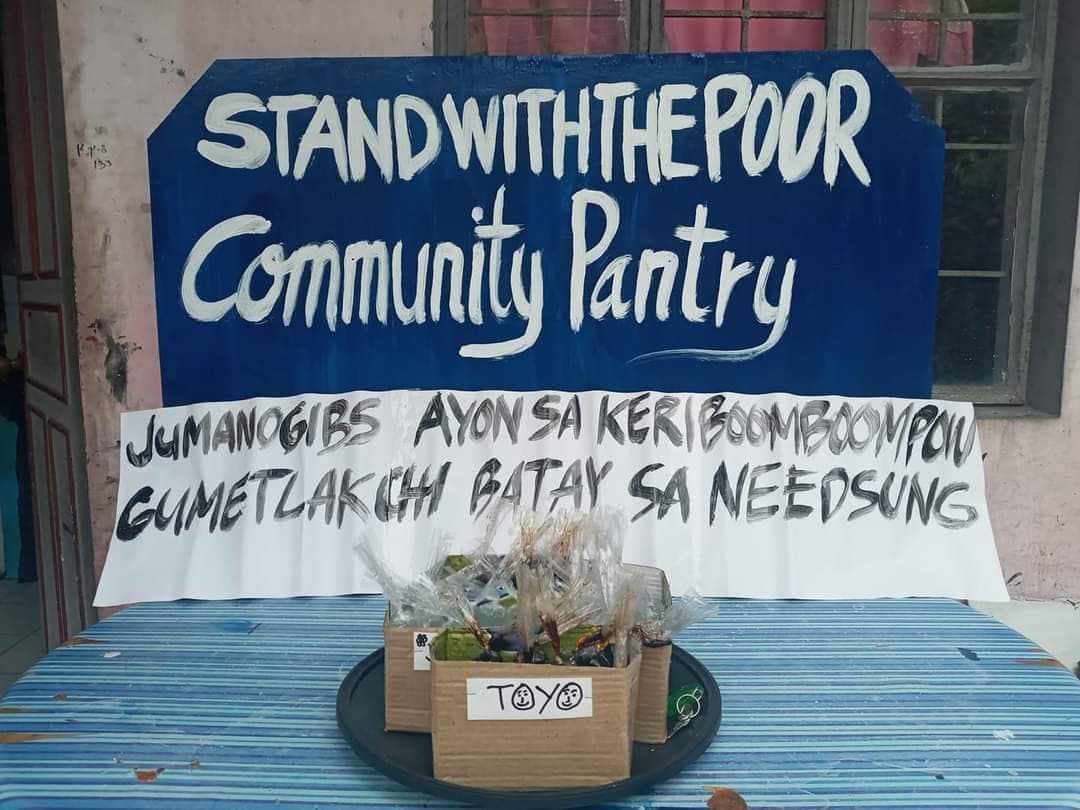 STAND WITH THE POOR
Community Pantry
JUMANOGIBS AYON SA KERIBOOMBOOMPOIU
GUMETLAKCHI BATAY SA NEEDSUNG
TOYO